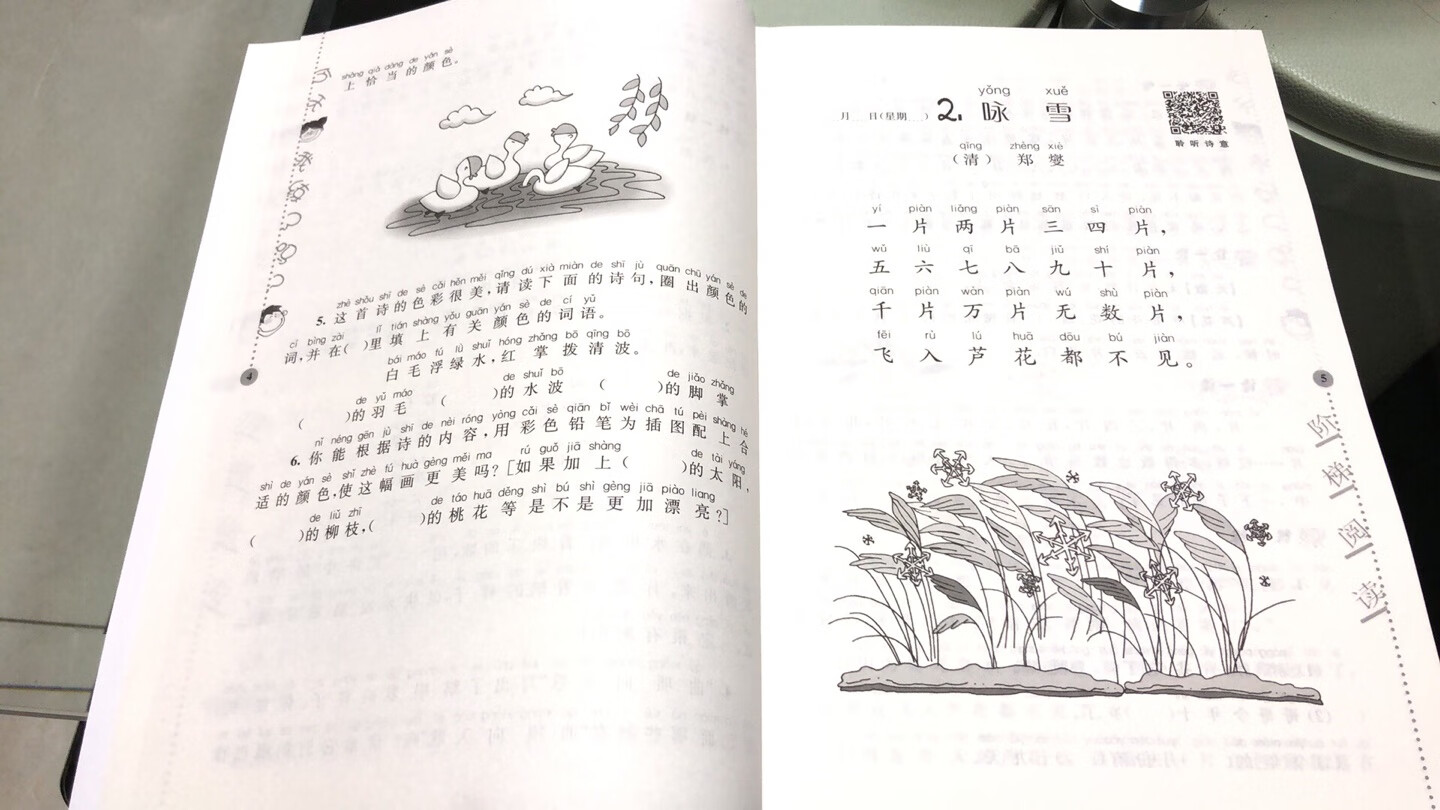 shàng qià dàng de yán sè
上恰当的颜色。
zhè shǒu shī de sè cǎi hěn měi qǐng dú xià miàn de shī jù quān chū yán sè de
5. 这首诗的色彩很美,请读下面的诗句,圈出颜色的
cí bìng zài lǐ tián shàng yǒu guān yán sè de cí yǔ
词,并在( )里填上有关颜色的词语。
bái máo fú lǜ shuǐ hóng zhǎng bō qīng bō
白毛浮绿水,红掌拨清波。
de yǔ máo de shuǐ bō de jiǎo zhǎng
( )的羽毛 ( )的水波 ( )的脚掌
nǐ néng gēn jù shī de nèi róng yòng cǎi sè qiān bǐ wèi chā tú pèi shàng hé
6. 你能根据诗的内容,用彩色铅笔为插图配上合
shì de yán sè shǐ zhè fú huà gèng měi ma rú guǒ jiā shàng de tài yáng
适的颜色,使这幅画更美吗?[如果加上( )的太阳,
de liǔ zhī de táo huā děng shì bú shì gèng jiā piào liang
( )的柳枝,( )的桃花等是不是更加漂亮?]
4
yǒng xuě
月 日(星期 ) 2. 咏雪
聆听诗意
qīng zhèng xiè
(清) 郑燮
yí piàn liǎng piàn sān sì piàn
一片两片三四片,
wǔ liù qī bā jiǔ shí piàn
五六七八九十片,
qiān piàn wàn piàn wú shù piàn
千片万片无数片,
fēi rù lú huā dōu bú jiàn
飞入芦花都不见。
5
阶梯阅读